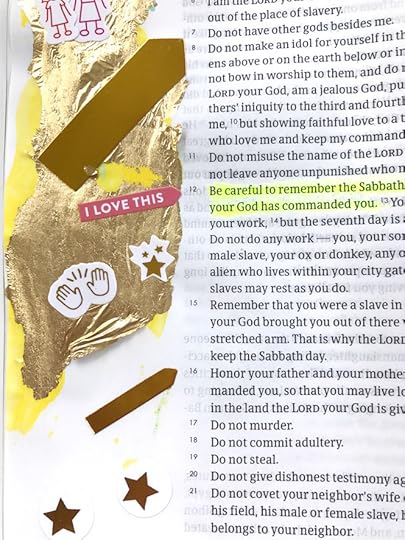 6 I am the LORD your
out of the place of slavery.
7 Do not have other gods besides me.
8 Do not make an idol for yourself in th
ens above or on the earth below or in
not bow in worship to them, and do n
LORD your God, am a jealous God, pu
thers' iniquity to the third and fourth
me, 10 but showing faithful love to a t
who love me and keep my command
11 Do not misuse the name of the LORD
not leave anyone unpunished who m
12 Be careful to remember the Sabbath
your God has commanded you. 13 Yo
I LOVE THIS
your work, 14 but the seventh day is a
Do not do any work — you, your son
male slave, your ox or donkey, any o
alien who lives within your city gate
slaves may rest as you do.
15 Remember that you were a slave in
your God brought you out of there w
stretched arm. That is why the LORD
keep the Sabbath day.
16 Honor your father and your mothe
manded you, so that you may live lo
in the land the LORD your God is giv
17 Do not murder.
18 Do not commit adultery.
19 Do not steal.
20 Do not give dishonest testimony ag
21 Do not covet your neighbor's wife
his field, his male or female slave, h
belongs to your neighbor.